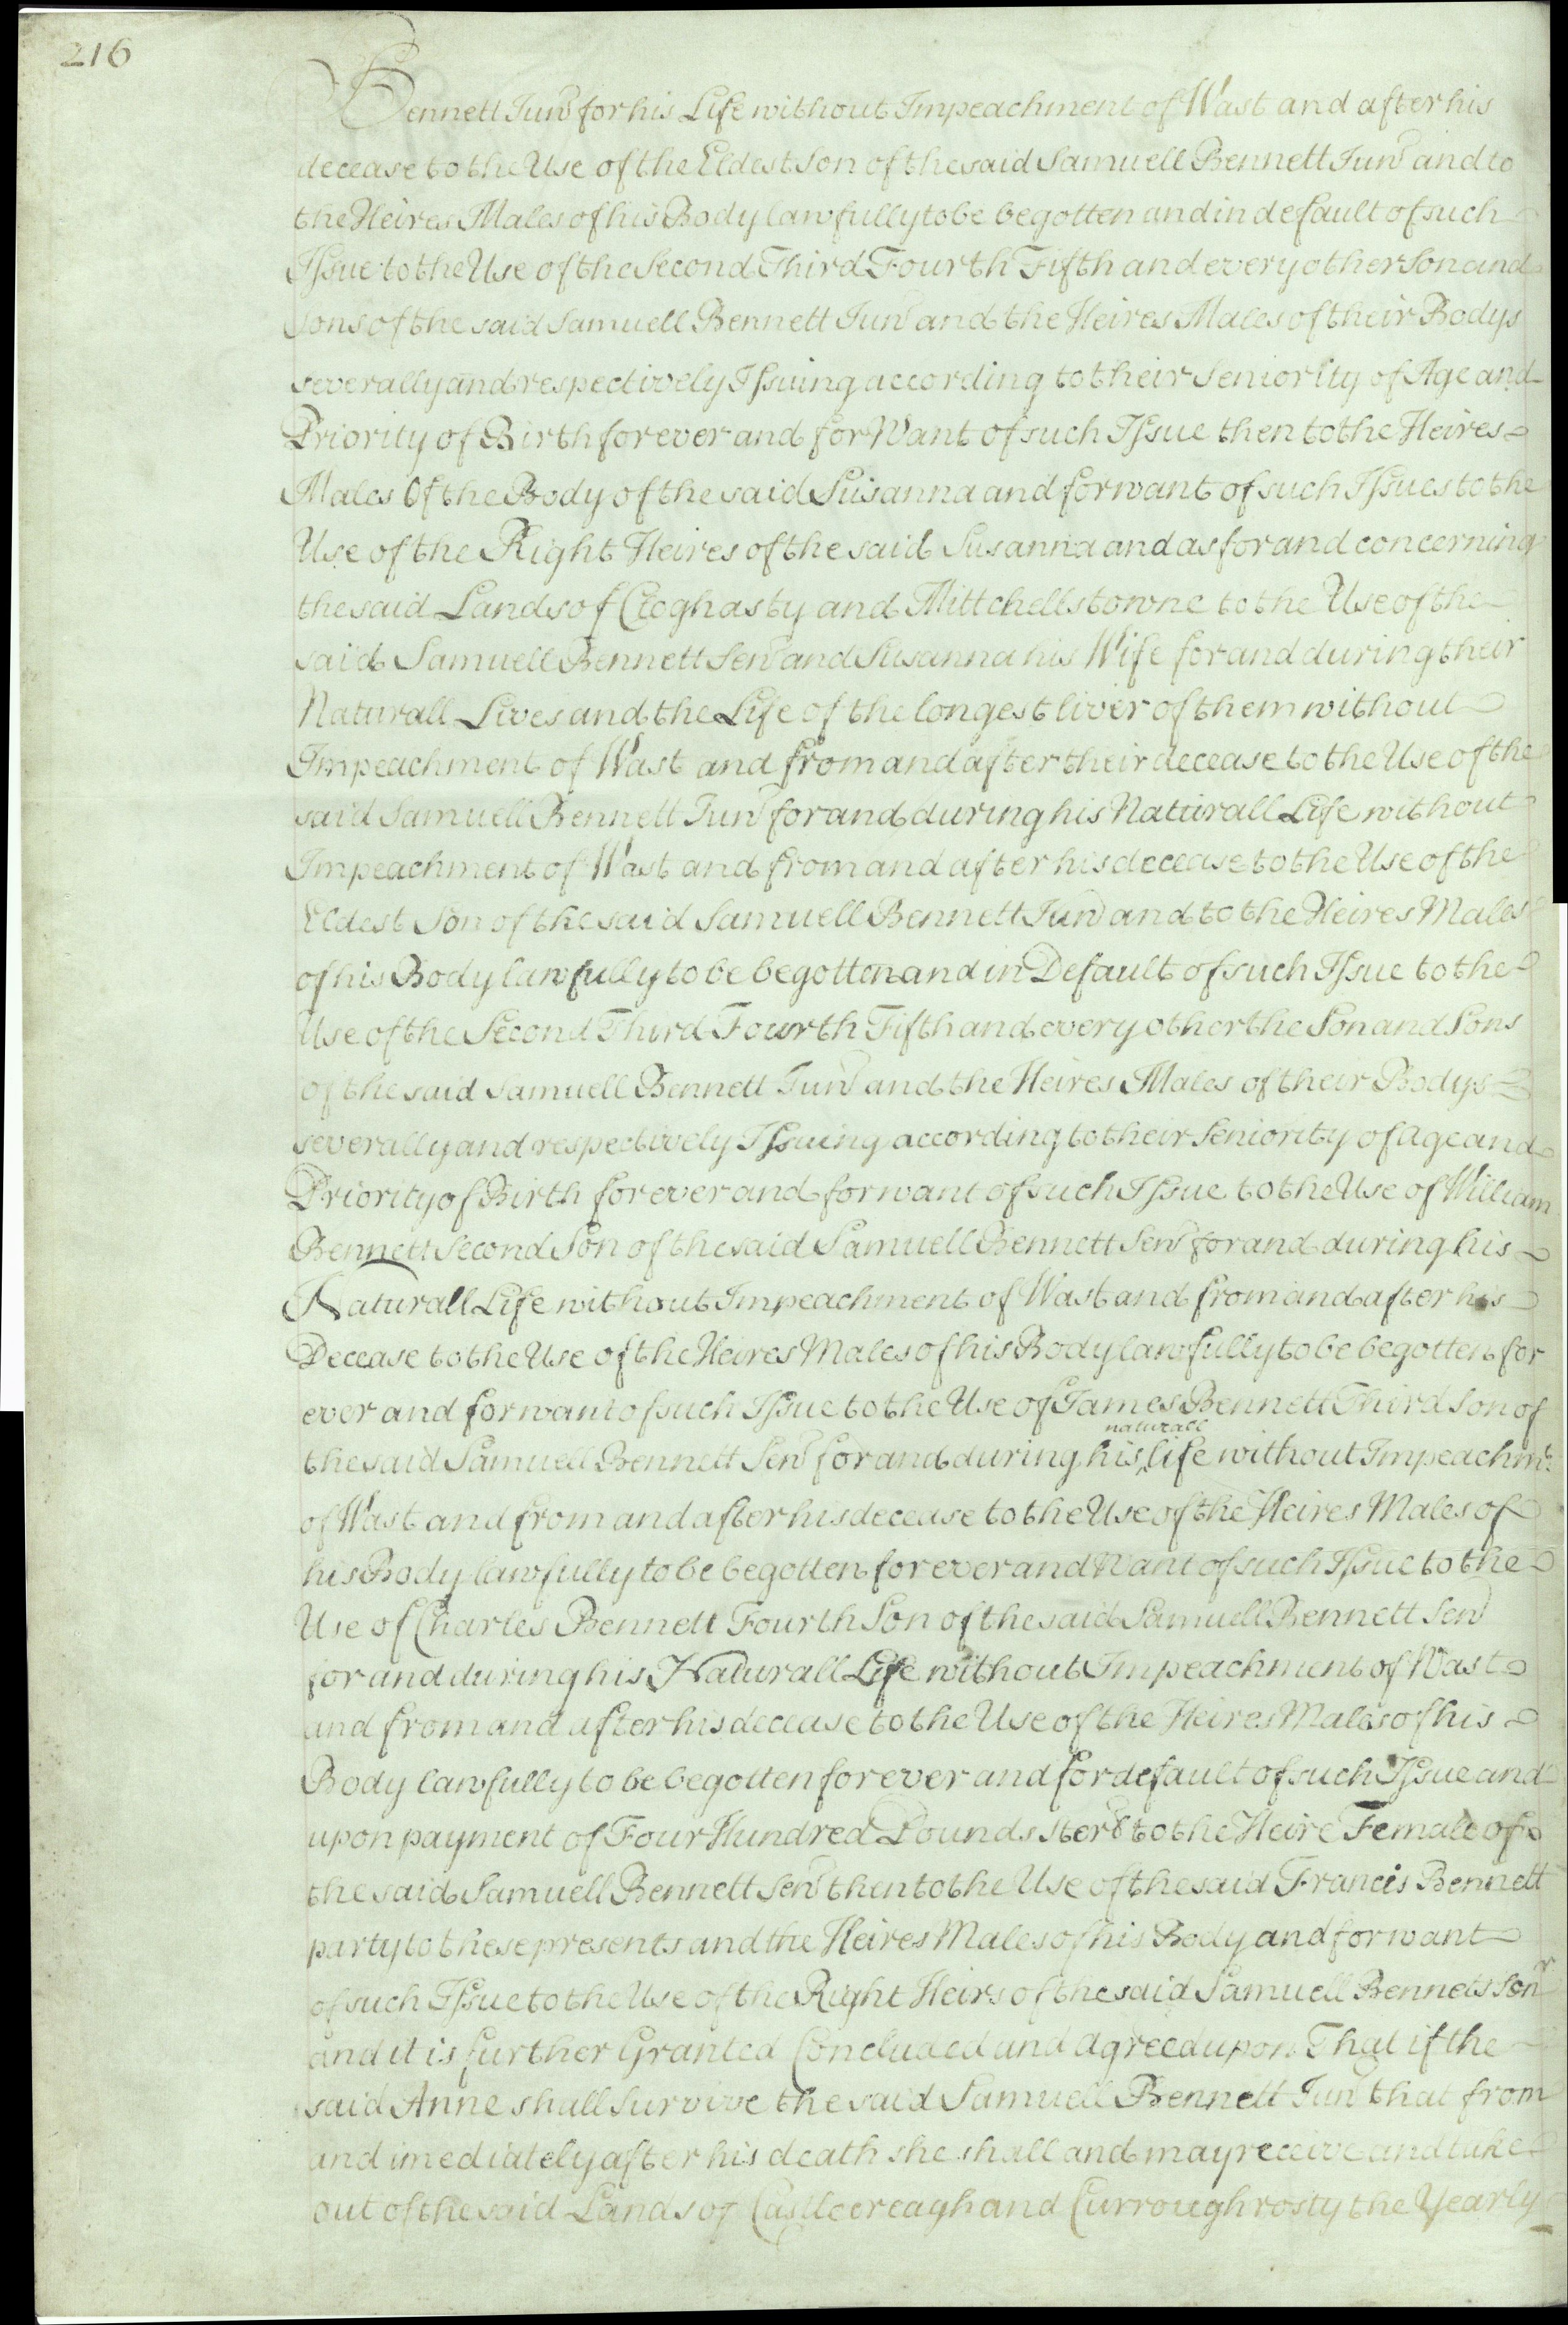 216
Bennett Junr for his Life without Impeachment of Wast and after his
decease to the Use of the Eldest Son of the said Samuell Bennett Junr and to
the Heires Males of his Body lawfully to be begotten and in default of such
Issue to the Use of the Second Third Fourth Fifth and every other Son and
sons of the said Samuell Bennett Junr and the Heires Males of their Bodys
severally and respectively Issuing according to their Seniority of Age and
Priority of Birth for ever and for Want of such Issue then to the Heires
Males Of the Body of the said Susanna and for want of such Issues to the
Use of the Right Heires of the said Susanna and as for and concerning
the said Lands of Cloghasty and Mittchellstowne to the Use of the
said Samuell Bennett Senr and Susanna his Wife for and during their
Naturall Lives and the Life of the longest liver of them without
Impeachment of Wast and from and after their decease to the Use of the
said Samuell Bennett Junr for and during his Naturall Life without
Impeachment of Wast and from and after his decease to the Use of the
Eldest Son of the said Samuell Bennett Junr and to the Heires Males
of his Body lawfully to be begotten and in Default of such Issue to the
Use of the Second Third Fourth Fifth and every other the Son and Sons
of the said Samuell Bennett Junr and the Heires Males of their Bodys
severally and respectively Issuing according to their Seniority of age and
Priority of Birth for ever and for want of such Issue to the Use of William
Bennett Second Son of the said Samuell Bennett Senr for and during his
Naturall Life without Impeachment of Wast and from and after his
Decease to the Use of the Heires Males of his Body lawfully to be begotten for
ever and for want of such Issue to the Use of James Bennett Third Son of
the said Samuell Bennett Senr for and during his naturall life without Impeachmt
of Wast and from and after his decease to the Use of the Heires Males of
his Body lawfully to be begotten for ever and Want of such Issue to the
Use of Charles Bennett Fourth Son of the said Samuell Bennett Senr
for and during his Naturall Life without Impeachment of Wast
and from and after his decease to the Use of the Heires Males of his
Body lawfully to be begotten for ever and for default of such Issue and
upon payment of Four Hundred Pounds Sterg to the Heire Female of
the said Samuell Bennett Senr then to the Use of the said Francis Bennett
party to these presents and the Heires Males of his Body and for want
of such Issue to the Use of the Right Heirs of the said Samuell Bennets Senr
and it is further Granted Concluded and Agreed upon That if the
said Anne shall survive the said Samuell Bennett Junr that from
and imediately after his death she shall and may receive and take
out of the said Lands of Castlecreagh and Curroughrosty the Yearly